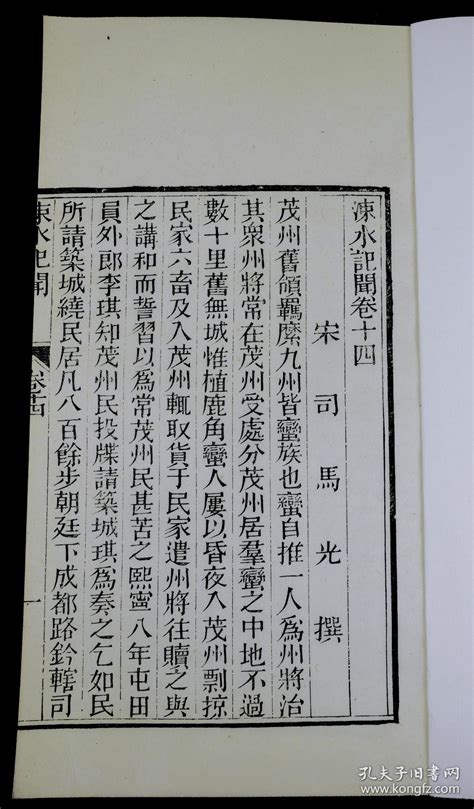 涑水記聞卷十四
宋司馬光撰
茂州舊領羈縻九州皆蠻族也蠻自推一人為州將治
其眾州將常在茂州受處分茂州居羣蠻之中地不過
數十里舊無城惟植鹿角蠻人屢以昏夜入茂州剽掠
民家六畜及入茂州輒取貨于民家遣州將往贖之與
之講和而誓習以為常茂州民甚苦之熙寧八年屯田
員外郎李琪知茂州民投牒請築城琪為奏之乞如民
所請築城繞民居凡八百餘步朝廷下成都路鈐轄司
涑水記聞
卷十四
一
孔夫子旧书网
www.kongfz.com